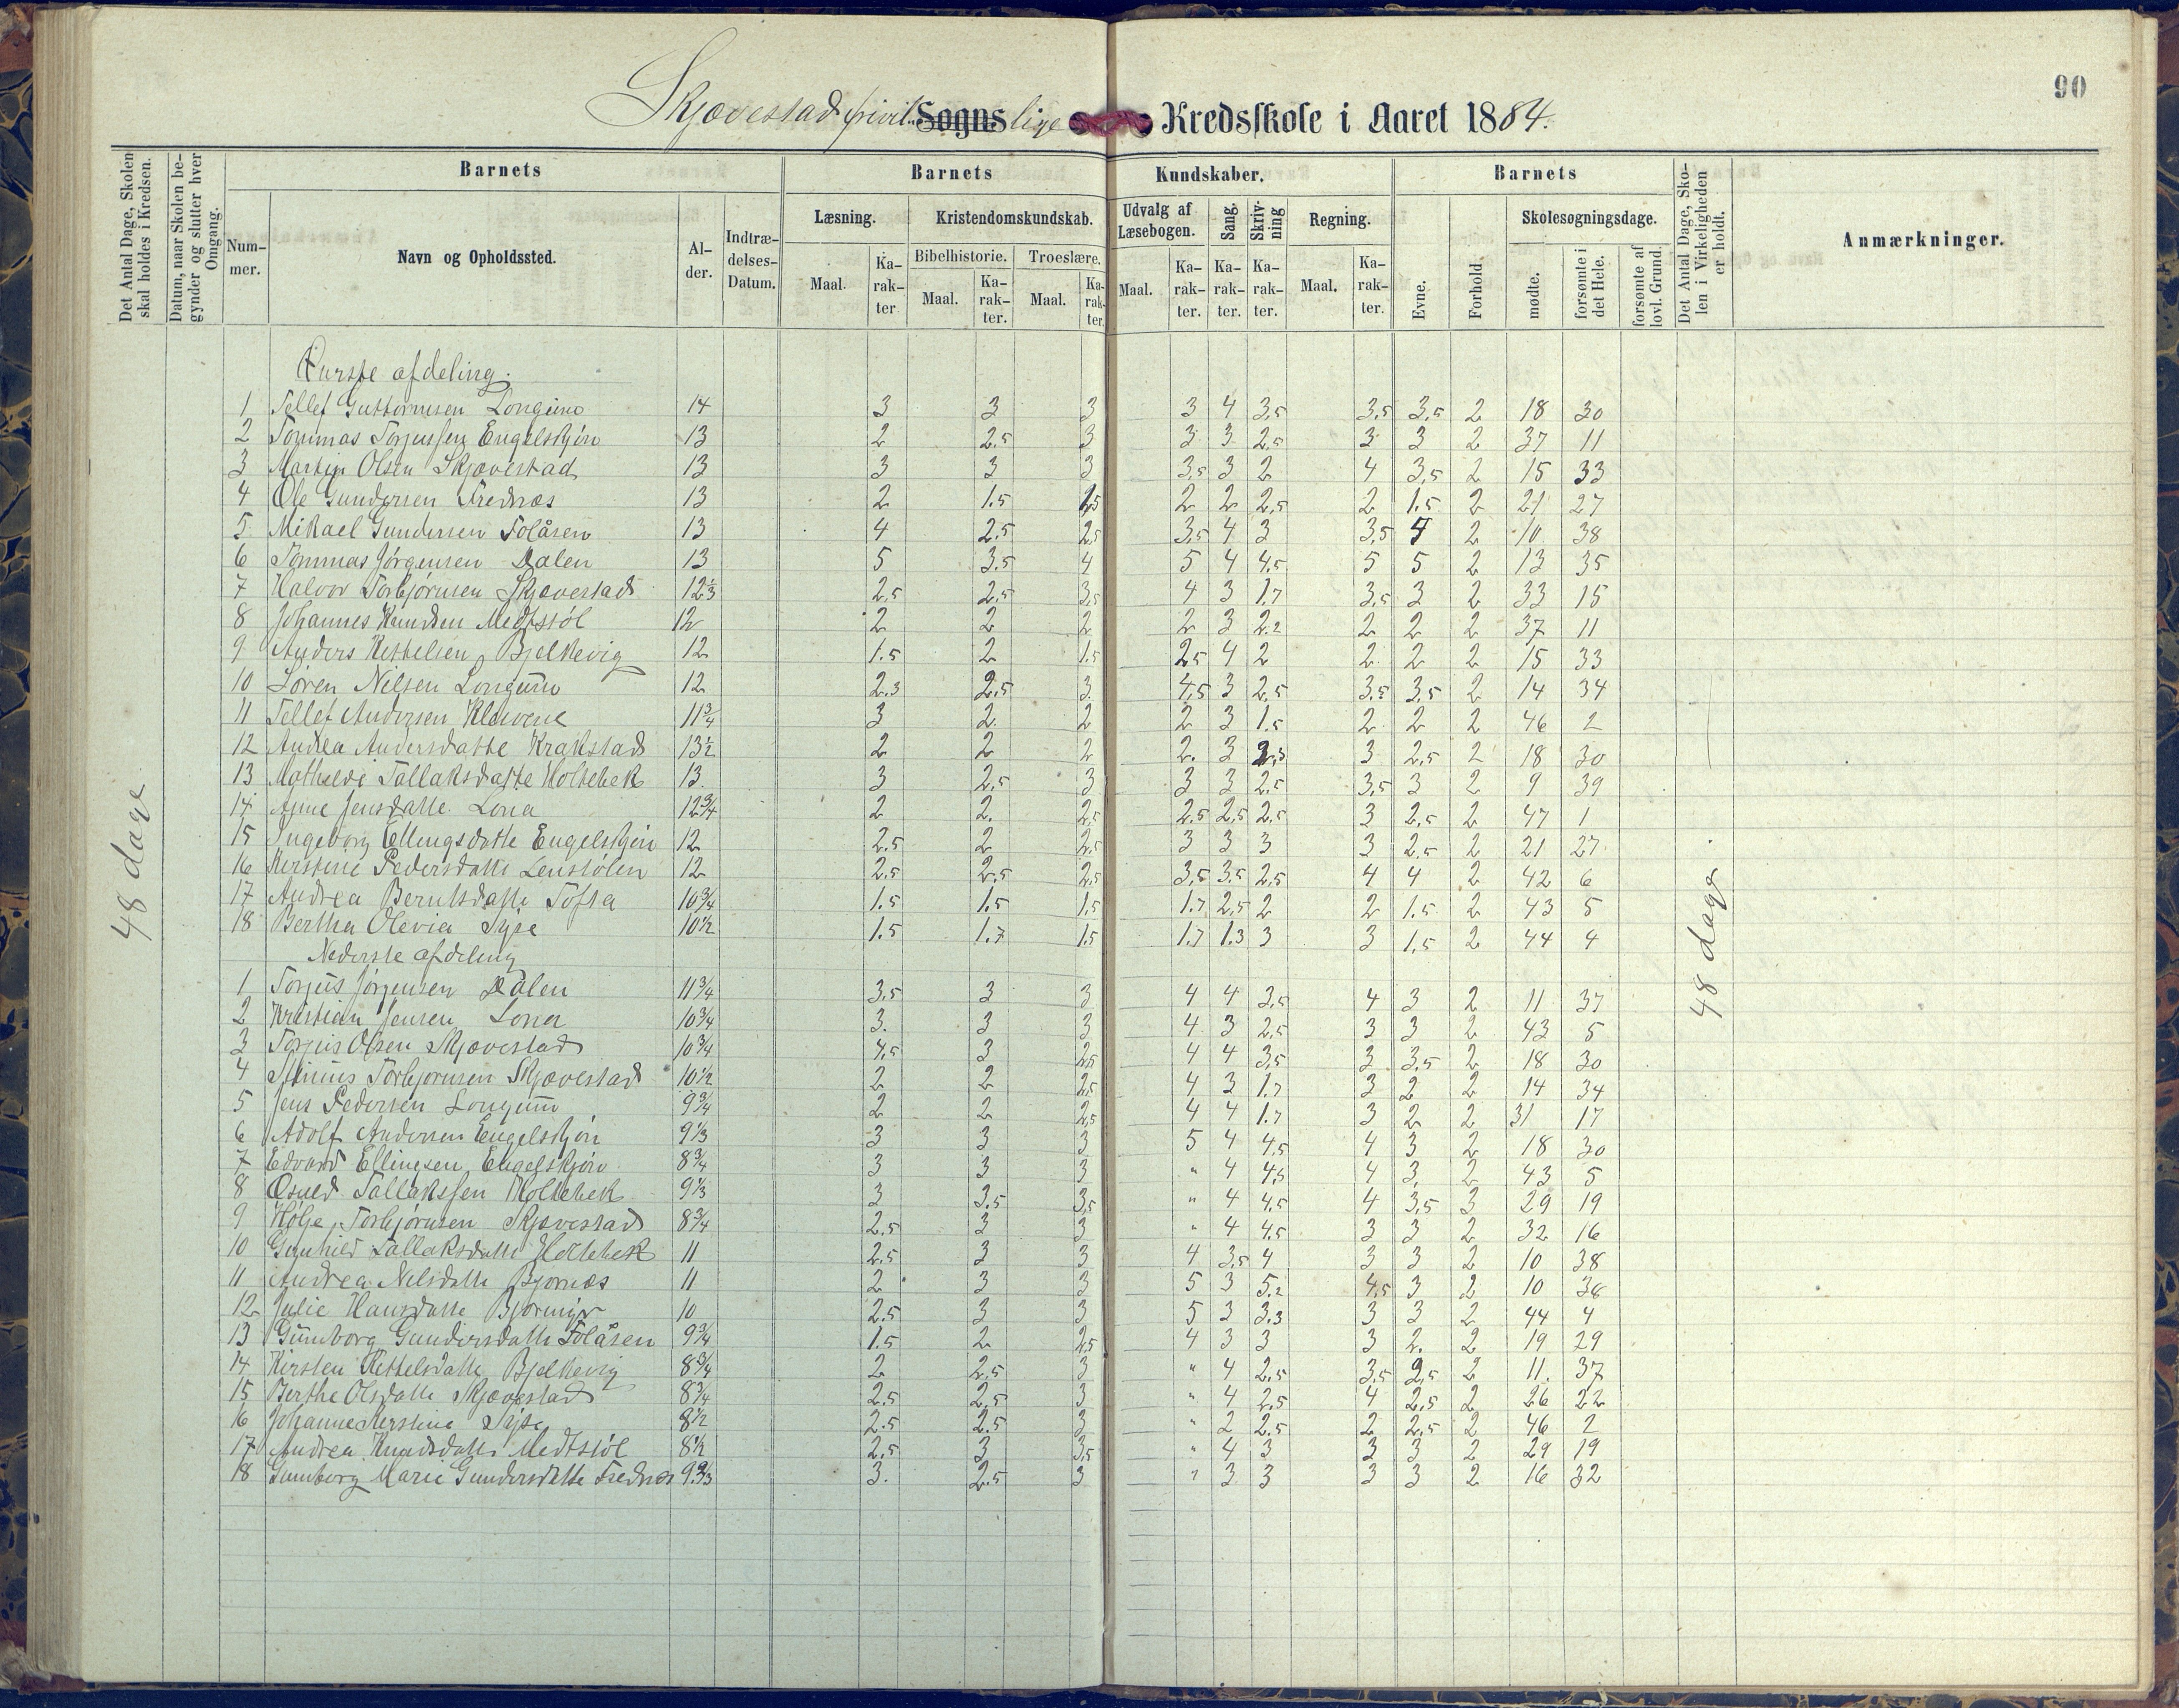 90
Skjævestad privil. Sogns lige Kredsskole i Aaret 1884.
Det Antal Dage, Skolen skal holdes i Kredsen.
Datum, naar Skolen begynder og slutter hver Omgang.
Barnets Barnets Kundskaber. Barnets
Det Antal Dage, Skolen i Virkeligheden er holdt.
Anmærkninger.
Nummer. Navn og Opholdssted. Alder. Indtrædelses-Datum.
Læsning. Kristendomskundskab. Udvalg af Læsebogen. Sang. Skrivning Regning. Evne. Forhold Skolesøgningsdage.
Bibelhistorie. Troeslære.
Maal. Karakter Maal. Karakter. Maal. Karakter. Maal. Karakter. Karakter. Karakter. Maal. Karakter. mødte. forsømte i det Hele. forsømte af lovl. Grund.
48 dage
48 dage
afdeling.
1 Tellef Guttormsen Longum 14 3 3 3 3 4 3,5 3,5 3,5 2 18 30
2 Tommas Torjussen Engelskjøn 13 2 2,5 3 3 3 2,5 3 3 2 37 11
3 Martin Olsen Skjævestad 13 3 3 3 3,5 3 2 4 3,5 2 15 33
4 Ole Gundersen Frednæs 13 2 1.5 1,5 2 2 2,5 2 1.5 2 21 27
5 Mikael Gundersen Folåsen 13 4 2,5 2,5 3,5 4 3 3,5 4 2 10 38
6 Tommas Jørgensen Dalen 13 5 3.5 4 5 4 4,5 5 5 2 13 35
7 Halvor Torbjørnsen Skjævestad 12⅓ 2,5 2,5 3,5 4 3 1.7 3,5 3 2 33 15
8 Johannes Knudsen Medtstøl 12 2 2 2 2 3 2.2 2 2 2 37 11
9 Anders Kettelsen Bjelkevig 12 1.5 2 1.5 2,5 4 2 2 2 2 15 33
10 Søren Nilsen Longum 12 2.3 2,5 3. 4,5 3 2,5 3,5 3,5 2 14 34
11 Tellef Andersen Kleivene 11¾ 3 2 2 2 3 1.5 2 2 2 46 2
12 Andrea Andersdatte Krakstad 13½ 2 2 2 2. 3 2,3 3 2,5 2 18 30
13 Mathilde Tallaksdatte Holtebek 13. 3 2,5 3 3 3 2,5 3,5 3 2 9 39
14 Anne Jensdatte Lona 12¾ 2 2. 2,5 2.5 2,5 2,5 3 2,5 2 47 1
15 Ingeborg Ellingsdatte Engelskjøn 12 2.5 2 2.5 3 3 3 3 2,5 2 21 27
16 Kirstine Pedersdatte Lenstølen 12 2.5 2,5 2,5 3,5 3.5 2,5 4 4 2 42 6
17 Andrea Berntsdatte Tofta 10¾ 1.5 1.5 1,5 1.7 2,5 2 2 1.5 2 43 5
18 Bertha Olevia Myre 10½ 1.5 1.7 1.5 1.7 1.3 3 3 1.5 2 44 4
Nederste afdeling
1 Torjus Jørgensen Dalen 11¾ 3,5 3 3 4 4 3,5 4 3 2 11 37
2 Kristian Jensen Lona 10¾ 3. 3 3 4 3 2,5 3 3 2 43 5
3 Torjus Olsen Skjævestad 10¾ 4,5 3 2,5 4 4 3,5 3 3,5 2 18 30
4 Torbjørnsen Skjævestad 10½ 2 2 2,5 4 3 1.7 3 2 2 14 34
5 Jens Pedersen Longum 9¾ 2 2 2,5 4 4 1.7 3 2 2 31 17
6 Adolf Andersen Engelskjøn 9⅓ 3 3 3 5 4 4,5 4 3 2 18 30
7 Edvard Ellingsen Engelskjøn 8¾ 3 3 3 " 4 4,5 4 3, 2 43 5
8 Tallakssen Holtebek 9⅓ 3 3.5 3,5 " 4 4,5 4 3,5 3 29 19
9 Hølje Torbjørnsen Skjævestad 8¾ 2.5 3 3 " 4 4.5 3 3 2 32 16
10 Gunhild Tallaksdatte Holtebek 11 2.5 3 3 4 3,5 4 3 3 2 10 38
11 Andrea Nilsdatte Bjørnæs 11 2 3 3 5 3 5.2 4,5 3 2 10 38
12 Julie Hansdatte Bjørmyr 10 2.5 3 3 5 3 3.3 3 3 2 44 4
13 Gunborg Gundersdatte Folåsen 9¾ 1.5 2 2,5 4 3 3 3 2. 2 19 29
14 Kirsten Kettelsdatte Bjelkevig 8¾ 2 2,5 3 " 4 2.5 3,5 2,5 2 11. 37
15 Berthe Olsdatte Skjævestad 8¾ 2.5 2,5 3 " 4 2.5 4 2,5 2 26 22
16 Johanne Kirstine Myre 8½ 2.5 2.5 3 " 2 2.5 2 2,5 2 46 2
17 Andrea Knudsdatte Medtstøl 8½ 2,5 3 3,5 " 4 3 3 3 2 29 19
18 Gunborg Marie Gundersdatte Frednæs 9⅔ 3. 2.5 3 " 3 3 3 3 2 16 32